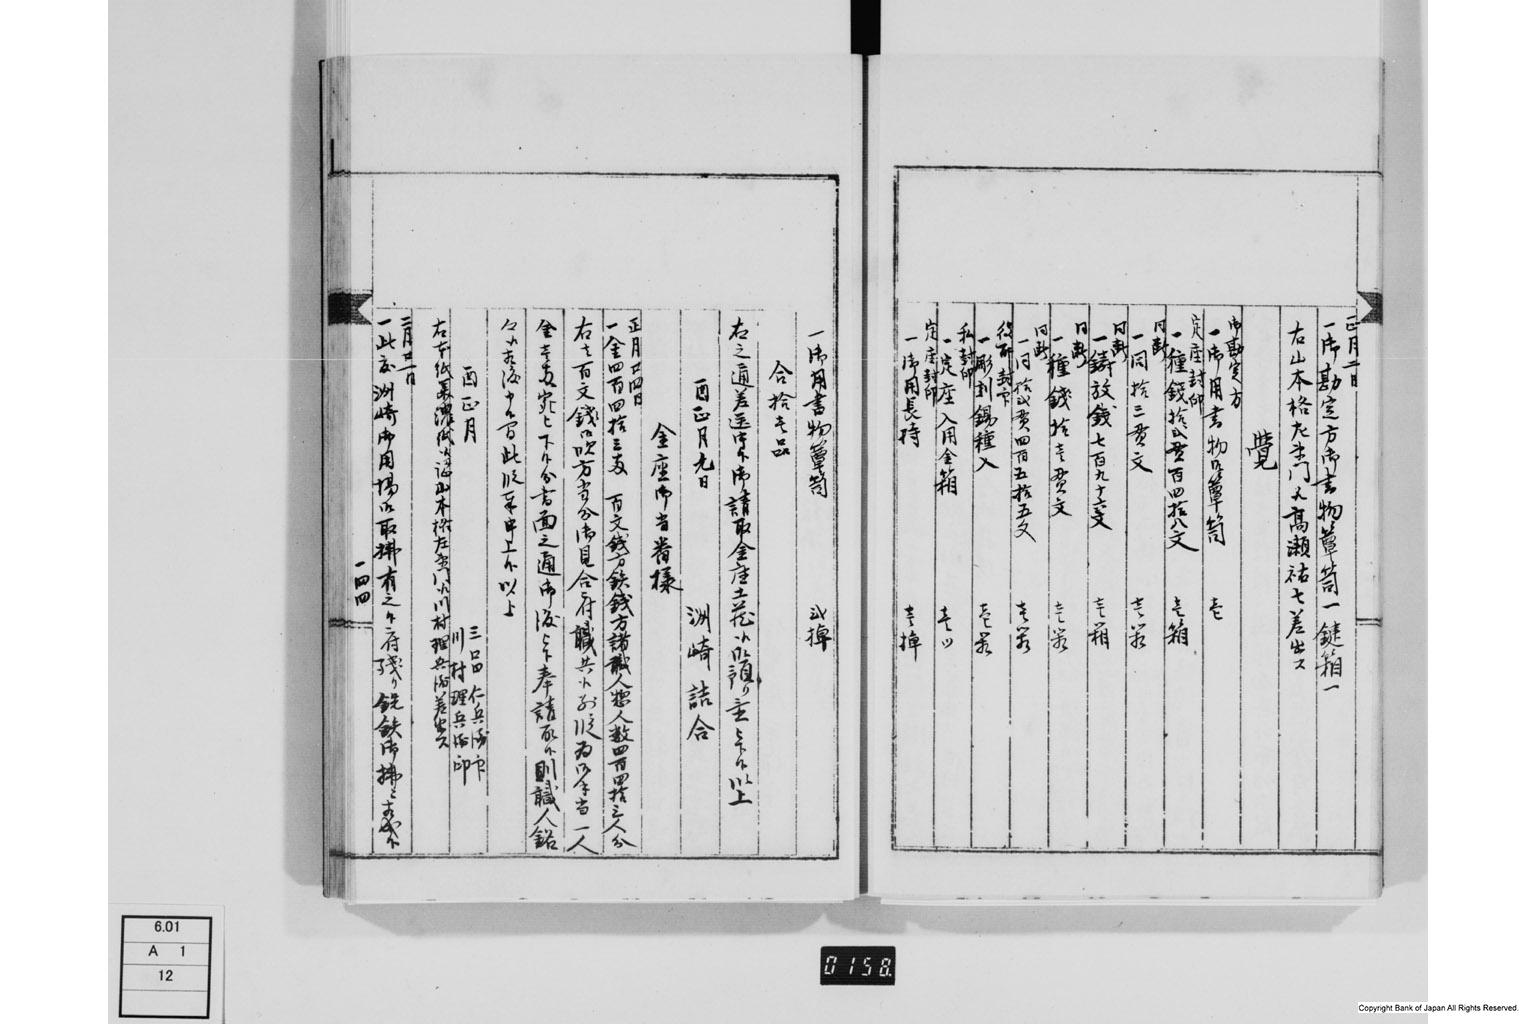 正月二日
一御勘定方御書物簞笥一鍵箱一
右山本格左衛門又高瀬祐七差出ス
覚
御勘定方
一御用書物簞笥 壱
定座封印
一種銭拾弐貫百四拾八文 壱箱
同断
一同拾三貫文 壱
同断
一鋳放銭七百九十六文 壱箱
同断
一種銭拾壱貫文 壱
同断
一同拾弐貫四百五拾五文 壱
役所封印
一彫刻錫種入 壱
私封印
一定座入用金箱 壱ツ
定座封印
一御用長持 壱棹
一御用書物簞笥 弐棹
合拾壱品
右之通差送申候御請取金座土蔵 以上
酉正月九日 洲崎詰合
金座御当番様
正月廿四日
一金四百四拾三両 百文銭方鉄銭方諸職人惣人数四百四拾三人分
右者百文銭吹方当分御見合 職 為御手当一人
金壱両宛 下候分書面之通御渡 奉請取候則職人銘
々 此段奉申上候以上
酉正月 三 仁兵衛印
川村理兵衛印
右本紙美濃紙 認山本格左衛門 川村理兵衛差出ス
二月廿一日
一此度洲崎御用場御取払有之候 残り銑鉄御払
一四四
6.01
A 1
12
0158.
Copyright Bank of Japan All Rights Reserved.